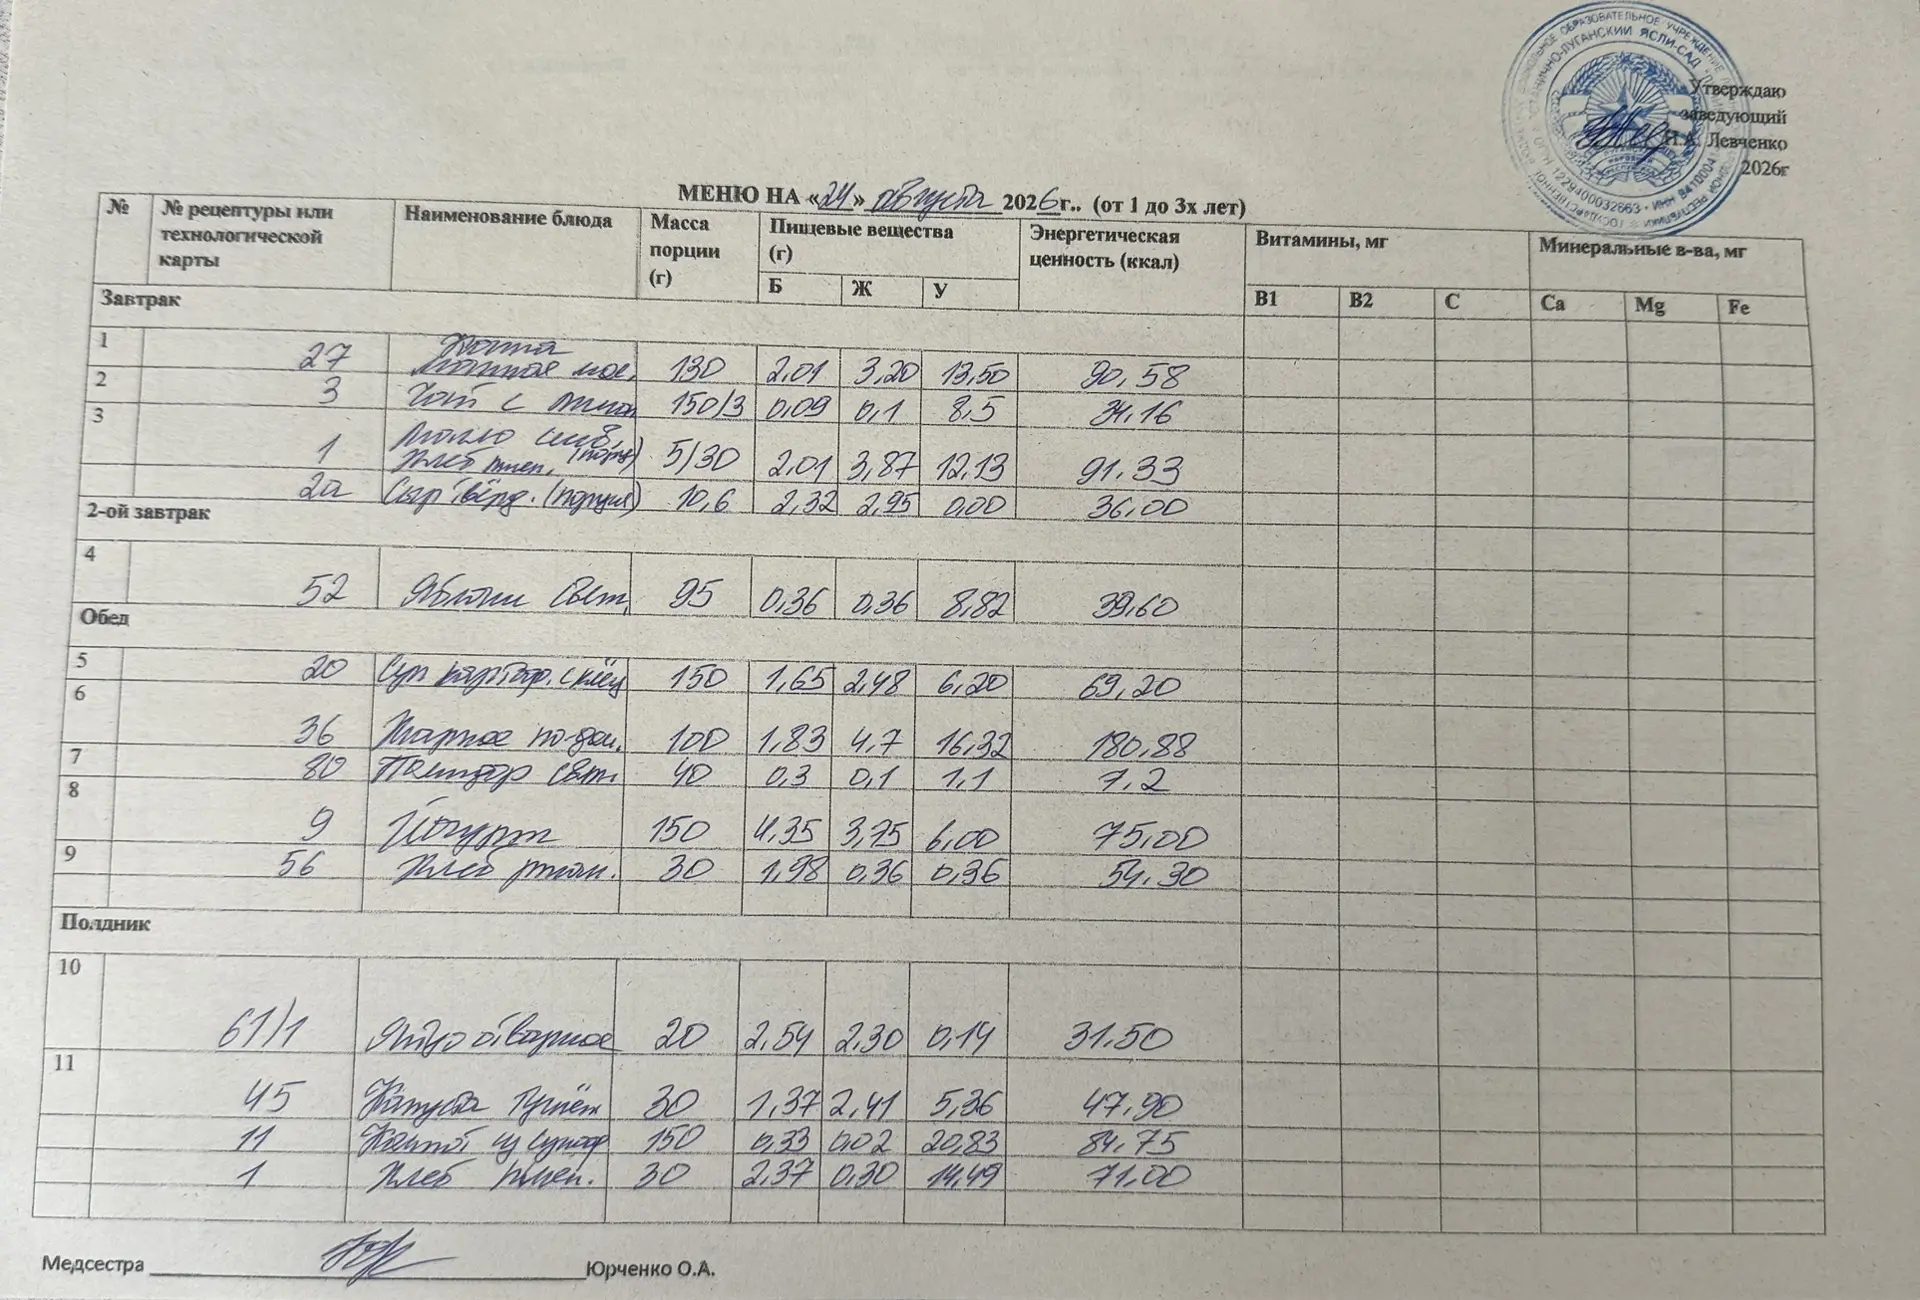 Утверждаю
заведующий
Н.А. Левченко
2026г
МЕНЮ НА «24» августа 2026г.. (от 1 до 3х лет)
№ № рецептуры или технологической карты Наименование блюда Масса порции (г) Пищевые вещества (г) Энергетическая ценность (ккал) Витамины, мг Минеральные в-ва, мг
Б Ж У В1 В2 С Ca Mg Fe
Завтрак
1 27 Каша манная мол. 130 2,01 3,20 13,50 90,58
2 3 Чай с лимон 150/3 0,09 0,1 8,5 34,16
3 1 Масло слив. (порц) Хлеб пшен. 5/30 2,01 3,87 12,13 91,33
2а Сыр твёрд. (порция) 10,6 2,32 2,95 0,00 36,00
2-ой завтрак
4 52 Яблоки свеж. 95 0,36 0,36 8,82 39,60
Обед
5 20 Суп картоф. с клёц 150 1,65 2,48 6,20 69,20
6 36 Жаркое по-дом. 100 1,83 4,7 16,32 180,88
7 80 Помидор свеж. 40 0,3 0,1 1,1 7,2
8 9 Йогурт 150 4,35 3,75 6,00 75,00
9 56 Хлеб ржан. 30 1,98 0,36 0,36 54,30
Полдник
10 61/1 Яйцо отварное 20 2,54 2,30 0,14 31.50
11 45 Капуста тушён 30 1,37 2,41 5,36 47,90
11 Компот из сухоф 150 0,33 0,02 20,83 84,75
1 Хлеб пшен. 30 2,37 0,30 14,49 71,00
Медсестра Юрченко О.А.